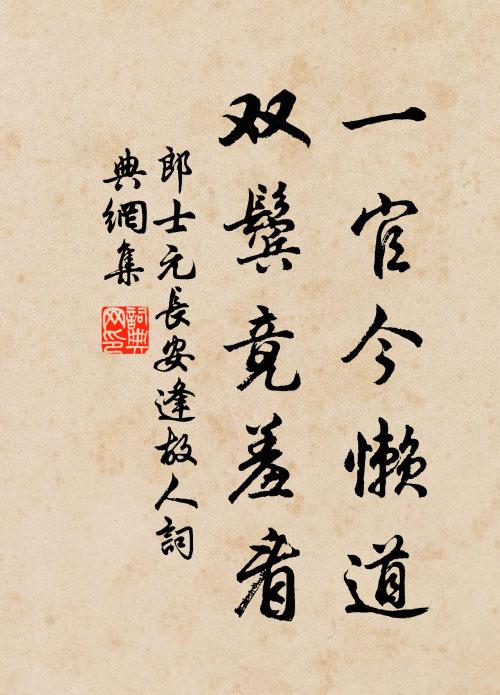 一官今懒道
双鬓竟羞看
郎士元長安逢故人詞
典網集
詞典
网印